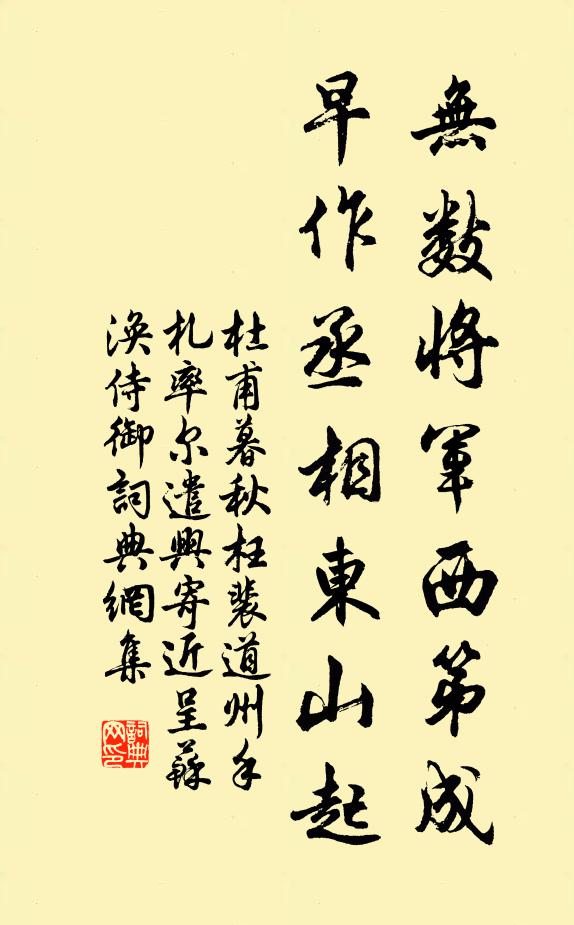 無數將軍西第成
早作丞相東山起
杜甫暮秋枉裴道州手
札率尔遣興寄近呈蘇
渙侍御詞典網集
詞典
网印